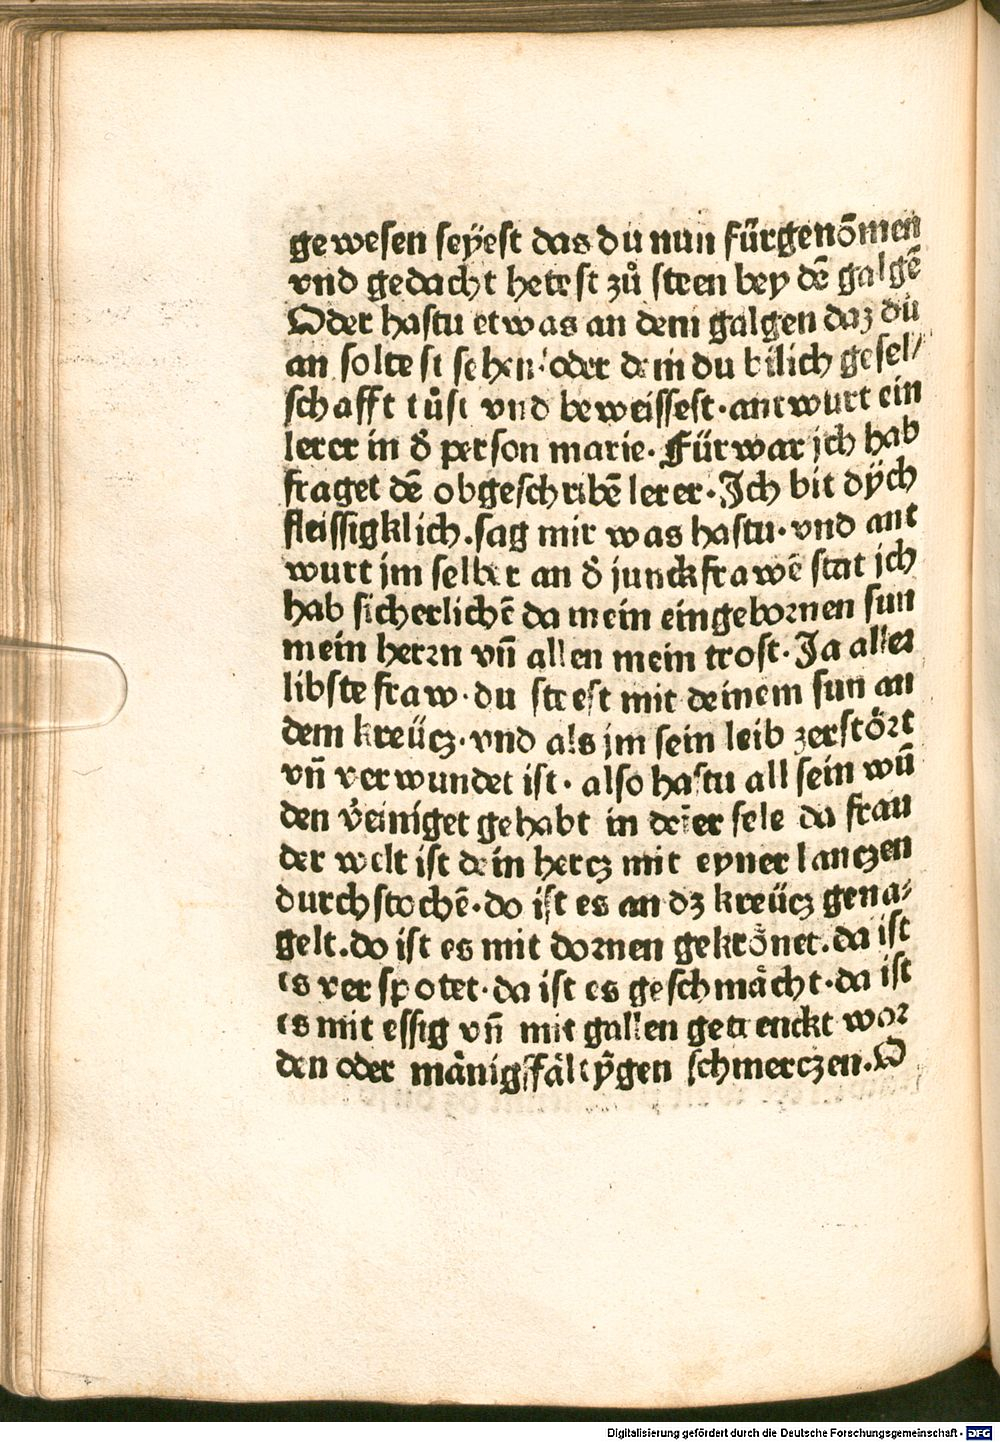 gewesen seÿest das du nun fürgenōmen
vnd gedacht hetest zů steen bey dē galgē
Oder hastu etwas an dem galgen daz du
an soltest sehen·oder dem du bilich gesel/
schafft tůst vnd beweissest·antwurt ein
lerer in d̄ person marie. Fürwar ich hab
fraget dē obgeschribē lerer·Ich bit dÿch
fleissigklich.sag mir was hastu·vnd ant
wurt jm selber an d̄ junckfrawē stat jch
hab sicherlichē da mein eingebornen sun
mein herrn vn̄ allen mein trost·Ja aller
libste fraw·du steest mit deinem sun an
dem kreücz·vnd als jm sein leib zerstört
vn̄ verwundet ist·also hastu all sein wū
den v̇einiget gehabt in deier sele da frau
der welt ist dein hercz mit eyner lanczen
durchstochē·do ist es an dz kreücz gena/
gelt.do ist es mit dornen gekrönet.da ist
es verspotet·da ist es geschmächt·da ist
es mit essig vn̄ mit gallen getrenckt wor
den oder mänigffältÿgen schmerczen.O
Digitalisierung gefördert durch die Deutsche Forschungsgemeinschaft - DFG